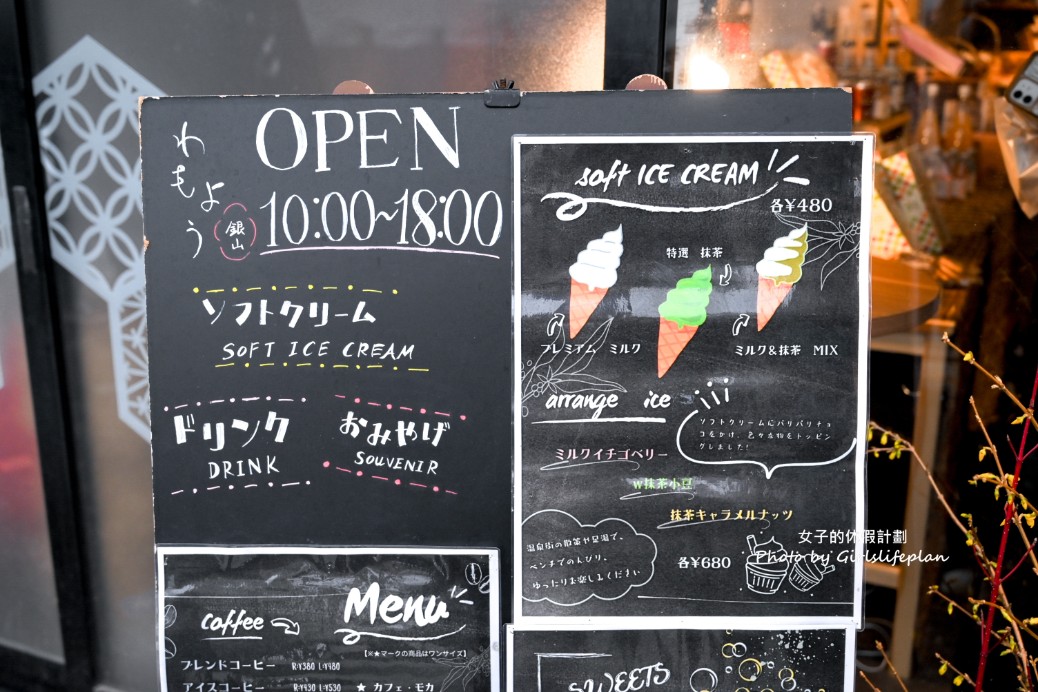 わもよう
銀山
OPEN
10:00~18:00
ソフトクリーム
SOFT ICE CREAM
ドリンク
DRINK
おみやげ
SOUVENIR
soft ICE CREAM
各¥480
特選 抹茶
プレミアム ミルク
ミルク&抹茶 MIX
arrange ice
ソフトクリームにパリパリチョ
コをかけ、色々な物をトッピン
グしました!
ミルクイチゴベリー
w抹茶小豆
抹茶キャラメルナッツ
各¥680
温泉街の散策や足湯で、
ベンチでのんびり、
ゆったりお楽しみください
女子的休假計劃
Photo by Girlslifeplan
coffee
Menu
【※★マークの商品はワンサイズ】
ブレンドコーヒー R:¥380 L:¥480
アイスコーヒー R:¥430 L:¥530
★ カフェ・モカ
SWEETS